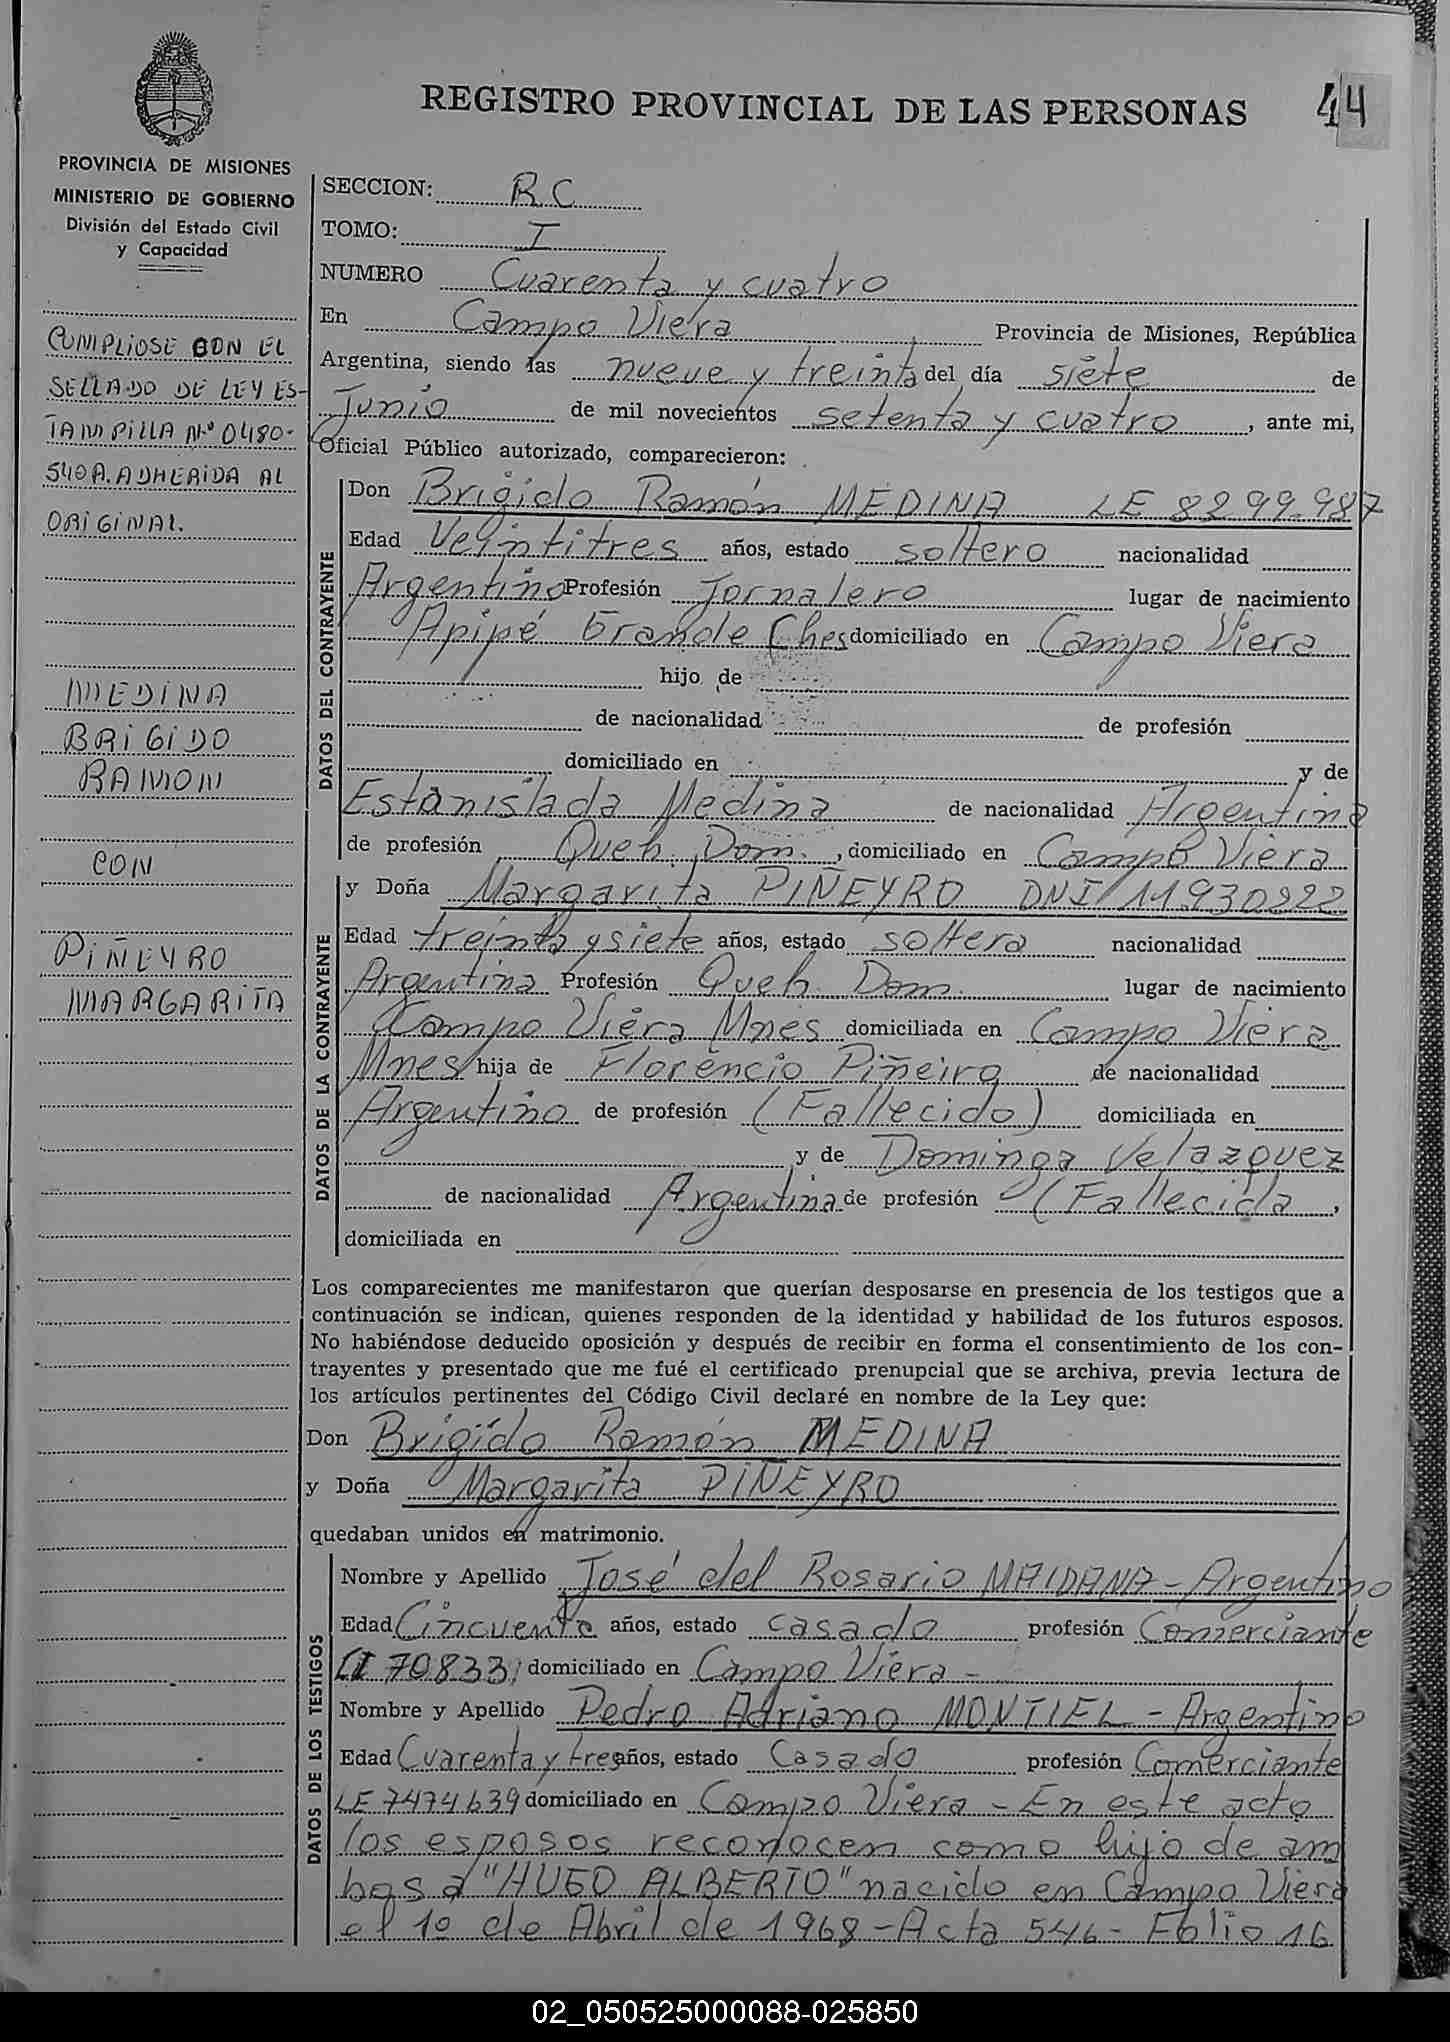 REGISTRO PROVINCIAL DE LAS PERSONAS
44
PROVINCIA DE MISIONES
MINISTERIO DE GOBIERNO
División del Estado Civil
y Capacidad
CUMPLIOSE CON EL
SELLADO DE LEY ES-
TAMPILLA Nº 0480-
540A. ADHERIDA AL
ORIGINAL.
MEDINA
BRIGIDO
RAMON
CON
PIÑEYRO
MARGARITA
SECCION: RC
TOMO: I
NUMERO Cuarenta y cuatro
En Campo Viera Provincia de Misiones, República
Argentina, siendo las nueve y treinta del día siete de
Junio de mil novecientos setenta y cuatro, ante mi,
Oficial Público autorizado, comparecieron:
DATOS DEL CONTRAYENTE
Don Brigido Ramón MEDINA LE 8299.987
Edad Veintitres años, estado soltero nacionalidad
Argentino Profesión Jornalero lugar de nacimiento
Apipé Grande Ctes domiciliado en Campo Viera
hijo de
de nacionalidad de profesión
domiciliado en y de
Estanislada Medina de nacionalidad Argentina
de profesión Queh. Dom., domiciliado en Campo Viera
DATOS DE LA CONTRAYENTE
y Doña Margarita PIÑEYRO DNI 11930922
Edad treinta y siete años, estado soltera nacionalidad
Argentina Profesión Queh. Dom. lugar de nacimiento
Campo Viera Mnes domiciliada en Campo Viera
Mnes hija de Florencio Piñeiro de nacionalidad
Argentino de profesión (Fallecido) domiciliada en
y de Dominga Velazquez
de nacionalidad Argentina de profesión (Fallecida,
domiciliada en
Los comparecientes me manifestaron que querían desposarse en presencia de los testigos que a
continuación se indican, quienes responden de la identidad y habilidad de los futuros esposos.
No habiéndose deducido oposición y después de recibir en forma el consentimiento de los con-
trayentes y presentado que me fué el certificado prenupcial que se archiva, previa lectura de
los artículos pertinentes del Código Civil declaré en nombre de la Ley que:
Don Brigído Ramón MEDINA
y Doña Margarita PIÑEYRO
quedaban unidos en matrimonio.
DATOS DE LOS TESTIGOS
Nombre y Apellido José del Rosario MAIDANA - Argentino
Edad Cincuenta años, estado casado profesión Comerciante
CI 70833, domiciliado en Campo Viera -
Nombre y Apellido Pedro Adriano MONTIEL - Argentino
Edad Cuarenta y tres años, estado Casado profesión Comerciante
LE 7474639 domiciliado en Campo Viera - En este acto
los esposos reconocen como hijo de am
bos a "HUGO ALBERTO" nacido en Campo Viera
el 1º de Abril de 1968 - Acta 546 - Folio 16
02_050525000088-025850